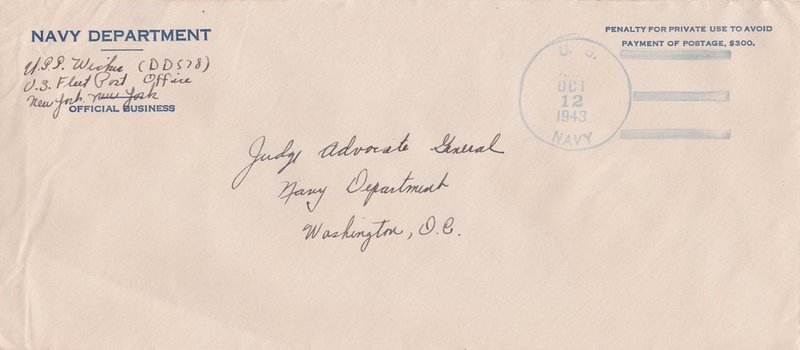 NAVY DEPARTMENT
U.S.S. Wickes (DD578)
U.S. Fleet Post Office
New York, New York
OFFICIAL BUSINESS
PENALTY FOR PRIVATE USE TO AVOID
PAYMENT OF POSTAGE, $300.
U. S.
OCT
12
1943
NAVY
Judge Advocate General
Navy Department
Washington, D.C.